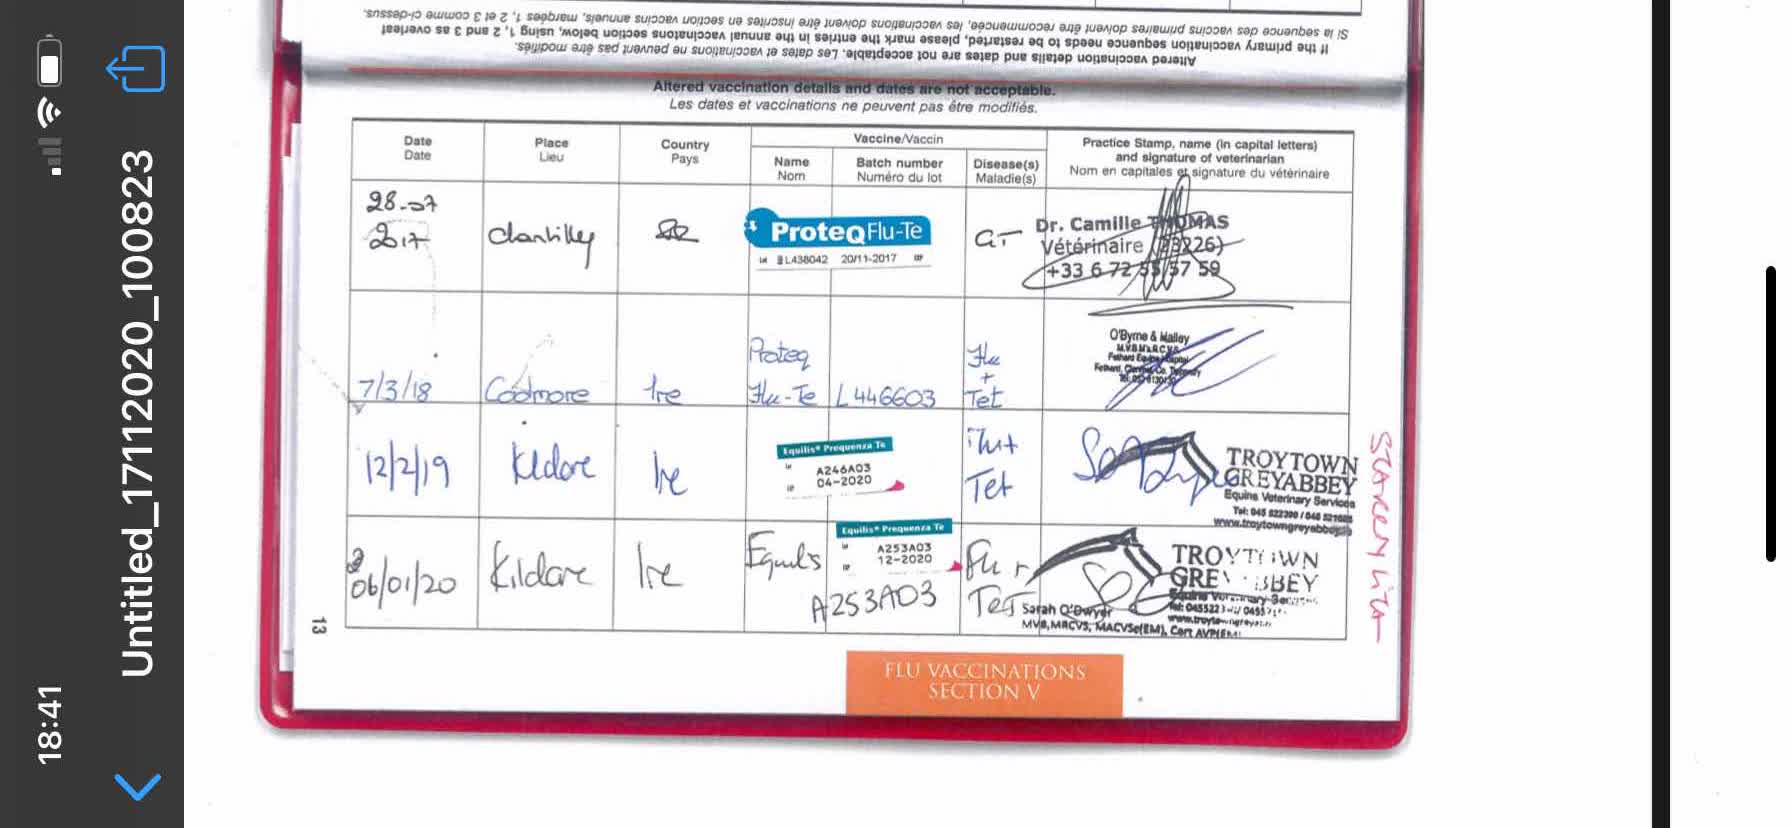 18:41
Untitled_17112020_100823
Si la séquence des vaccins primaires doivent être recommencée, les vaccinations doivent être inscrites en section vaccins annuels, marqées 1, 2 et 3 comme ci-dessus.
If the primary vaccination sequence needs to be restarted, please mark the entries in the annual vaccinations section below, using 1, 2 and 3 as overleaf
Altered vaccination details and dates are not acceptable. Les dates et vaccinations ne peuvent pas être modifiés.
Altered vaccination details and dates are not acceptable.
Les dates et vaccinations ne peuvent pas être modifiés.
Date
Date
Place
Lieu
Country
Pays
Vaccine/Vaccin
Name
Nom
Batch number
Numéro du lot
Disease(s)
Maladie(s)
Practice Stamp, name (in capital letters)
and signature of veterinarian
Nom en capitales et signature du vétérinaire
28-07
2017
Chantilly
ProteqFlu-Te
L438042 20/11-2017
GT
Dr. Camille THOMAS
Vétérinaire (23226)
+33 6 72 55 57 59
7/3/18
Coolmore
Ire
Proteq
Flu-Te
L446603
Flu
+
Tet
O'Byrne & Halley
12/2/19
Kildare
Ire
Equilis® Prequenza Te
A246A03
04-2020
Flu+
Tet
TROYTOWN
GREYABBEY
Equine Veterinary Services
www.troytowngreyabbey.ie
06/01/20
Kildare
Ire
Equilis
Equilis® Prequenza Te
A253A03
12-2020
A253A03
Flu +
Tet
TROYTOWN
GREYABBEY
Equine Veterinary Services
Sarah O'Dwyer
MVB, MRCVS, MACVSc(EM), Cert AVP(EM)
13
FLU VACCINATIONS
SECTION V